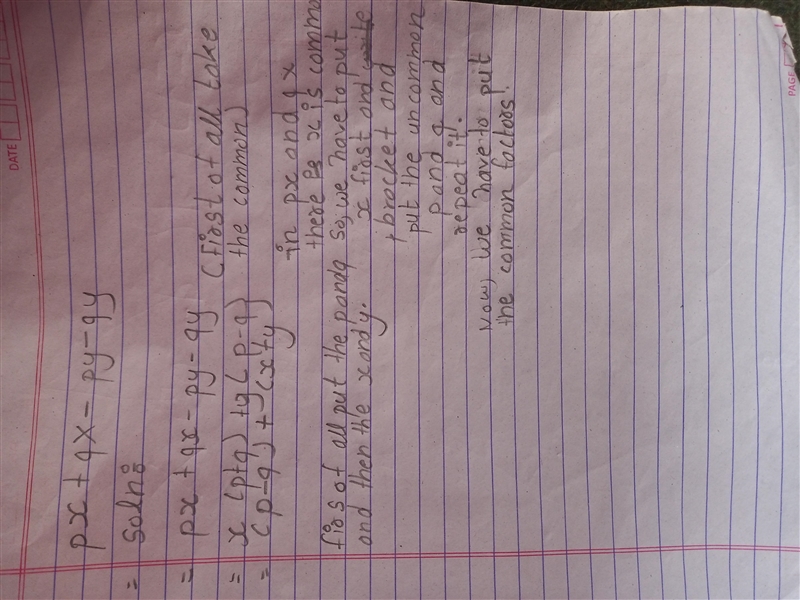 DATE
PAGE
px + qx - py - qy
= soln:
= px + qx - py - qy (first of all take
= x (p+q) + y( p-q) the common)
= (p-q) + (x+y)
in px and qx
there is x is commo
first of all put the pandq so, we have to put
and then the x and y. x first and
bracket and
put the uncommon
p and q and
repeat it.
Now, we have to put
the common factors!